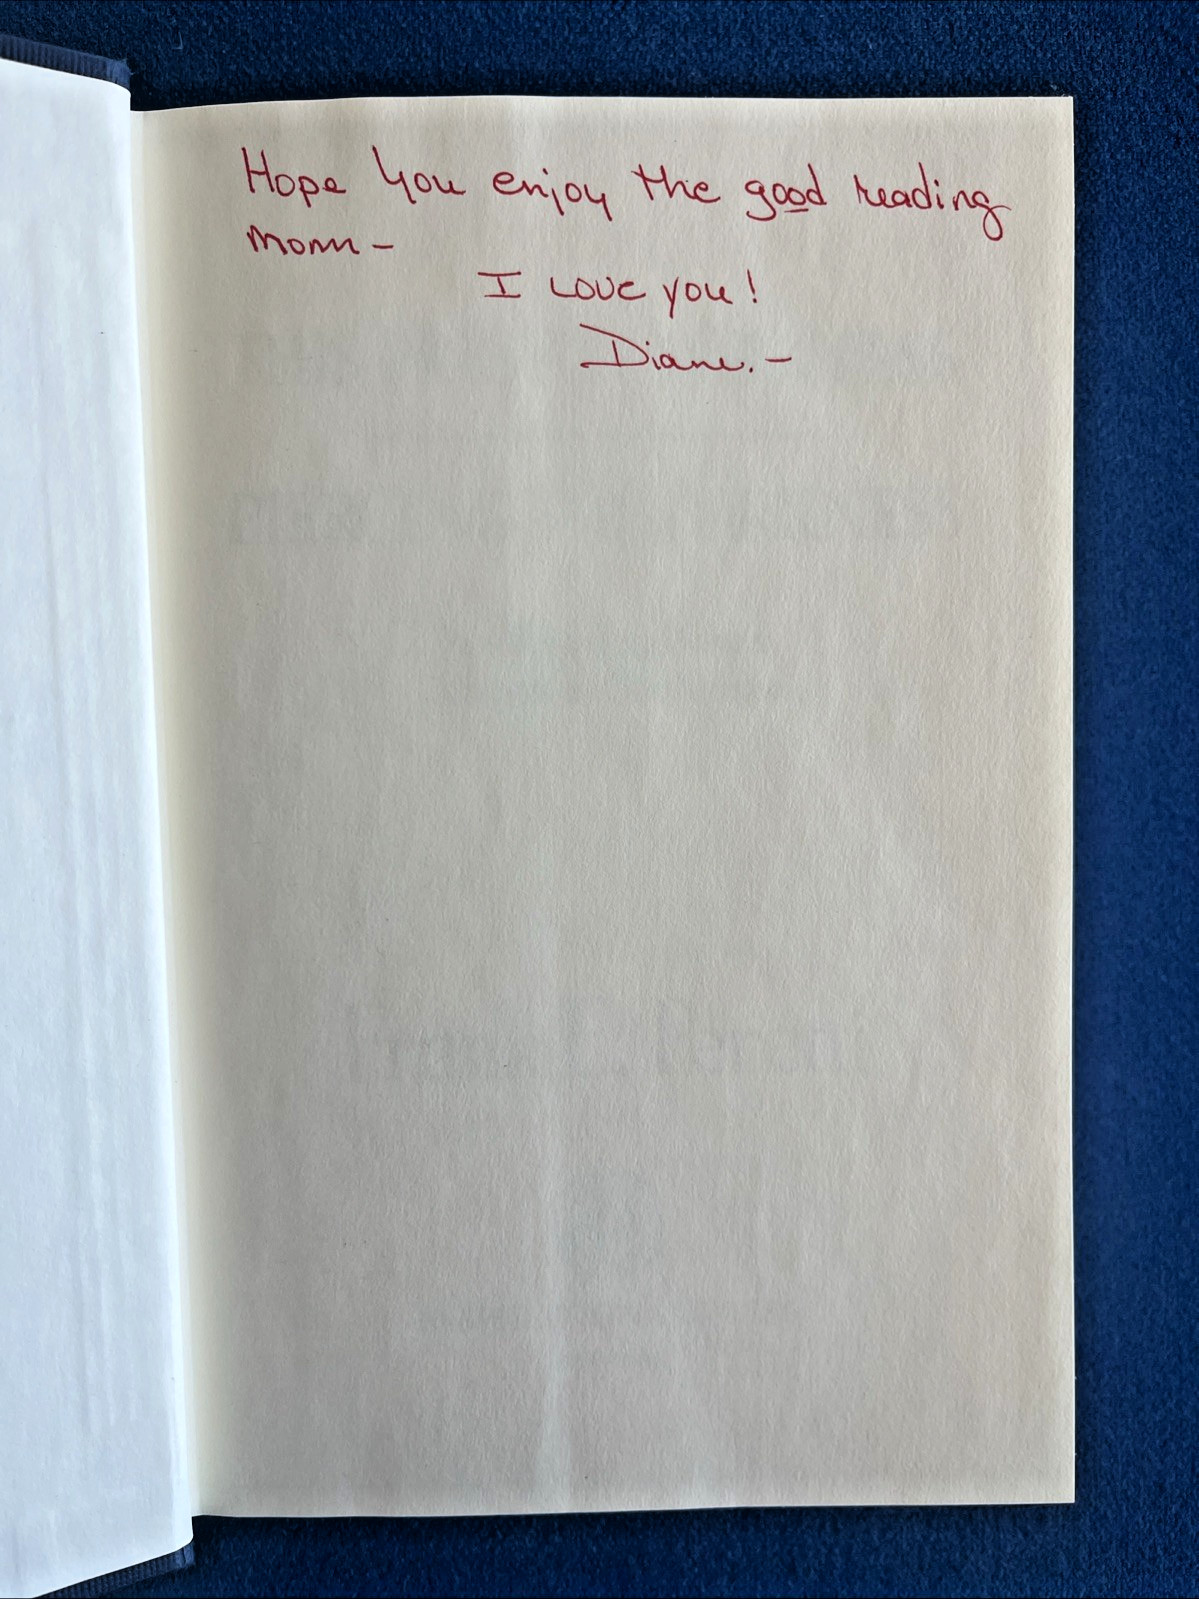 Hope you enjoy the good reading
Mom –
I Love you!
Diane. –